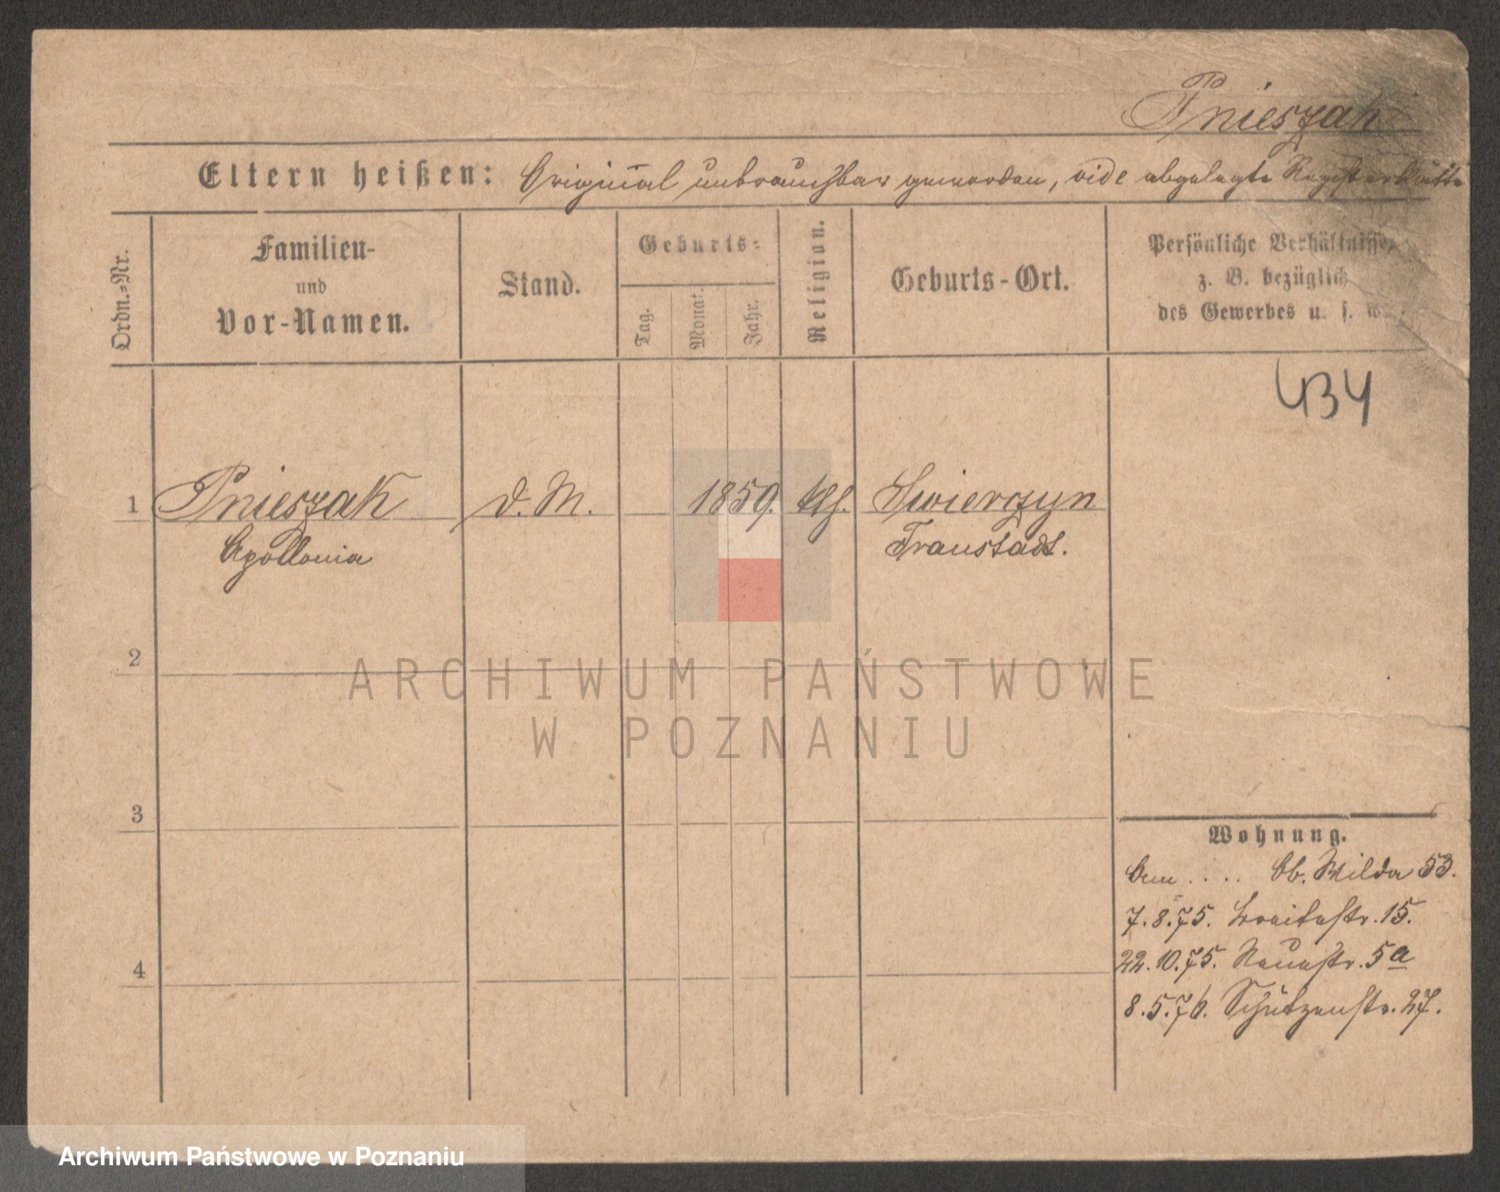 Pnieszak
Eltern heißen: Original unbrauchbar geworden, vide abgelegte Registerblätter
Ordn.-Nr.
Familien-
und
Vor-Namen.
Stand.
Geburts-
Tag.
Monat.
Jahr.
Religion.
Geburts-Ort.
Persönliche Verhältnisse,
z. B. bezüglich
des Gewerbes u. s. w.
434
1 Pnieszak d. M. 1859. kth. Swierczyn
Apollonia Fraustadt.
2
3
4
ARCHIWUM PAŃSTWOWE
W POZNANIU
Wohnung.
.... Ob. Wilda 53.
7.8.75. Breitestr. 15.
22.10.75. Neuestr. 5a
8.5.76. Schützenstr. 27.
Archiwum Państwowe w Poznaniu